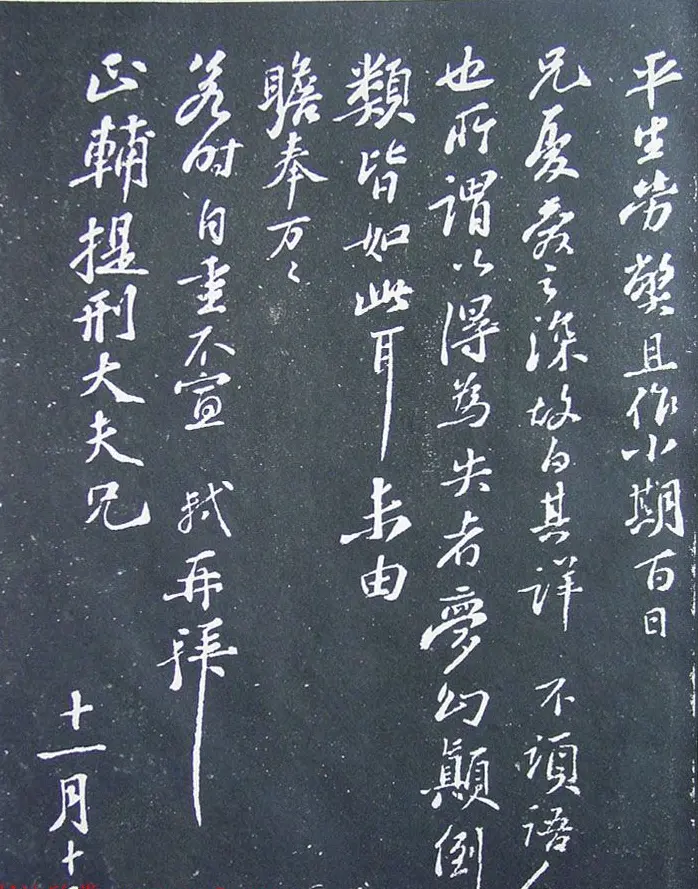 平生勞弊且作小期百日
兄憂愛之深故白其詳 不須語人
也所謂以得為失者夢幻顛倒
類皆如此耳未由
瞻奉万々
若時自重不宣 軾再拜
正輔提刑大夫兄
十一月十